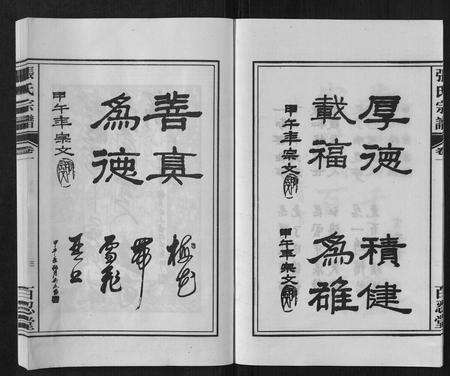 張氏宗譜
卷
厚德
載福
甲午年宗文
積健
為雄
甲午年宗文
百忍堂
張氏宗譜
卷一
善真
為德
甲午年宗文
雪飛
三
百忍堂